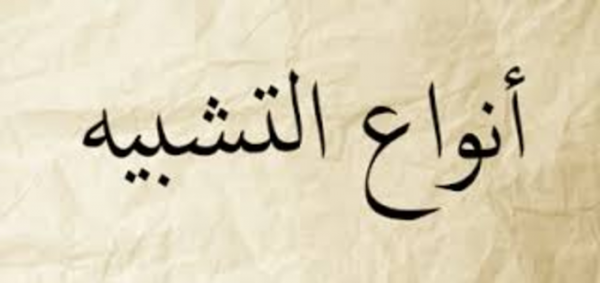 أنواع التشبيه